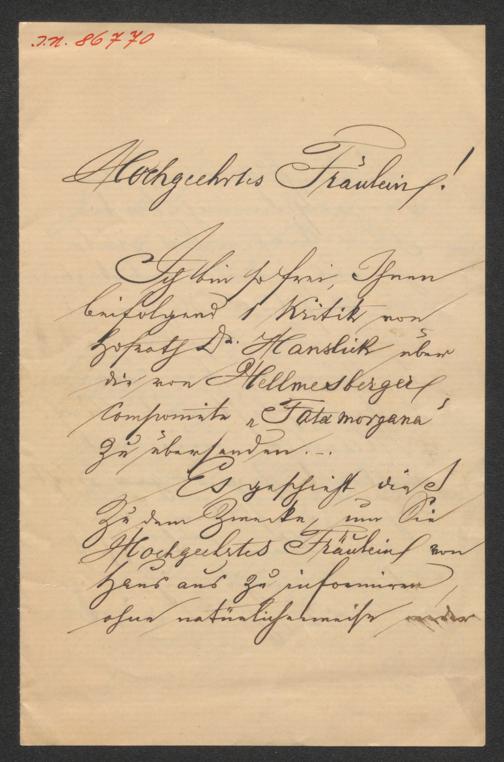 I.N. 86770
Hochgeehrtes Fräulein!
Ich bin so frei, Ihnen
beifolgend 1 Kritik von
Hofrath Dr. Hanslick über
die von Hellmesberger
componirte „Fata morgana"
zu übersenden...
Es geschieht dieß
zu dem Zwecke, um Sie
Hochgeehrtes Fräulein von
Haus aus zu informiren,
ohne natürlicherweise